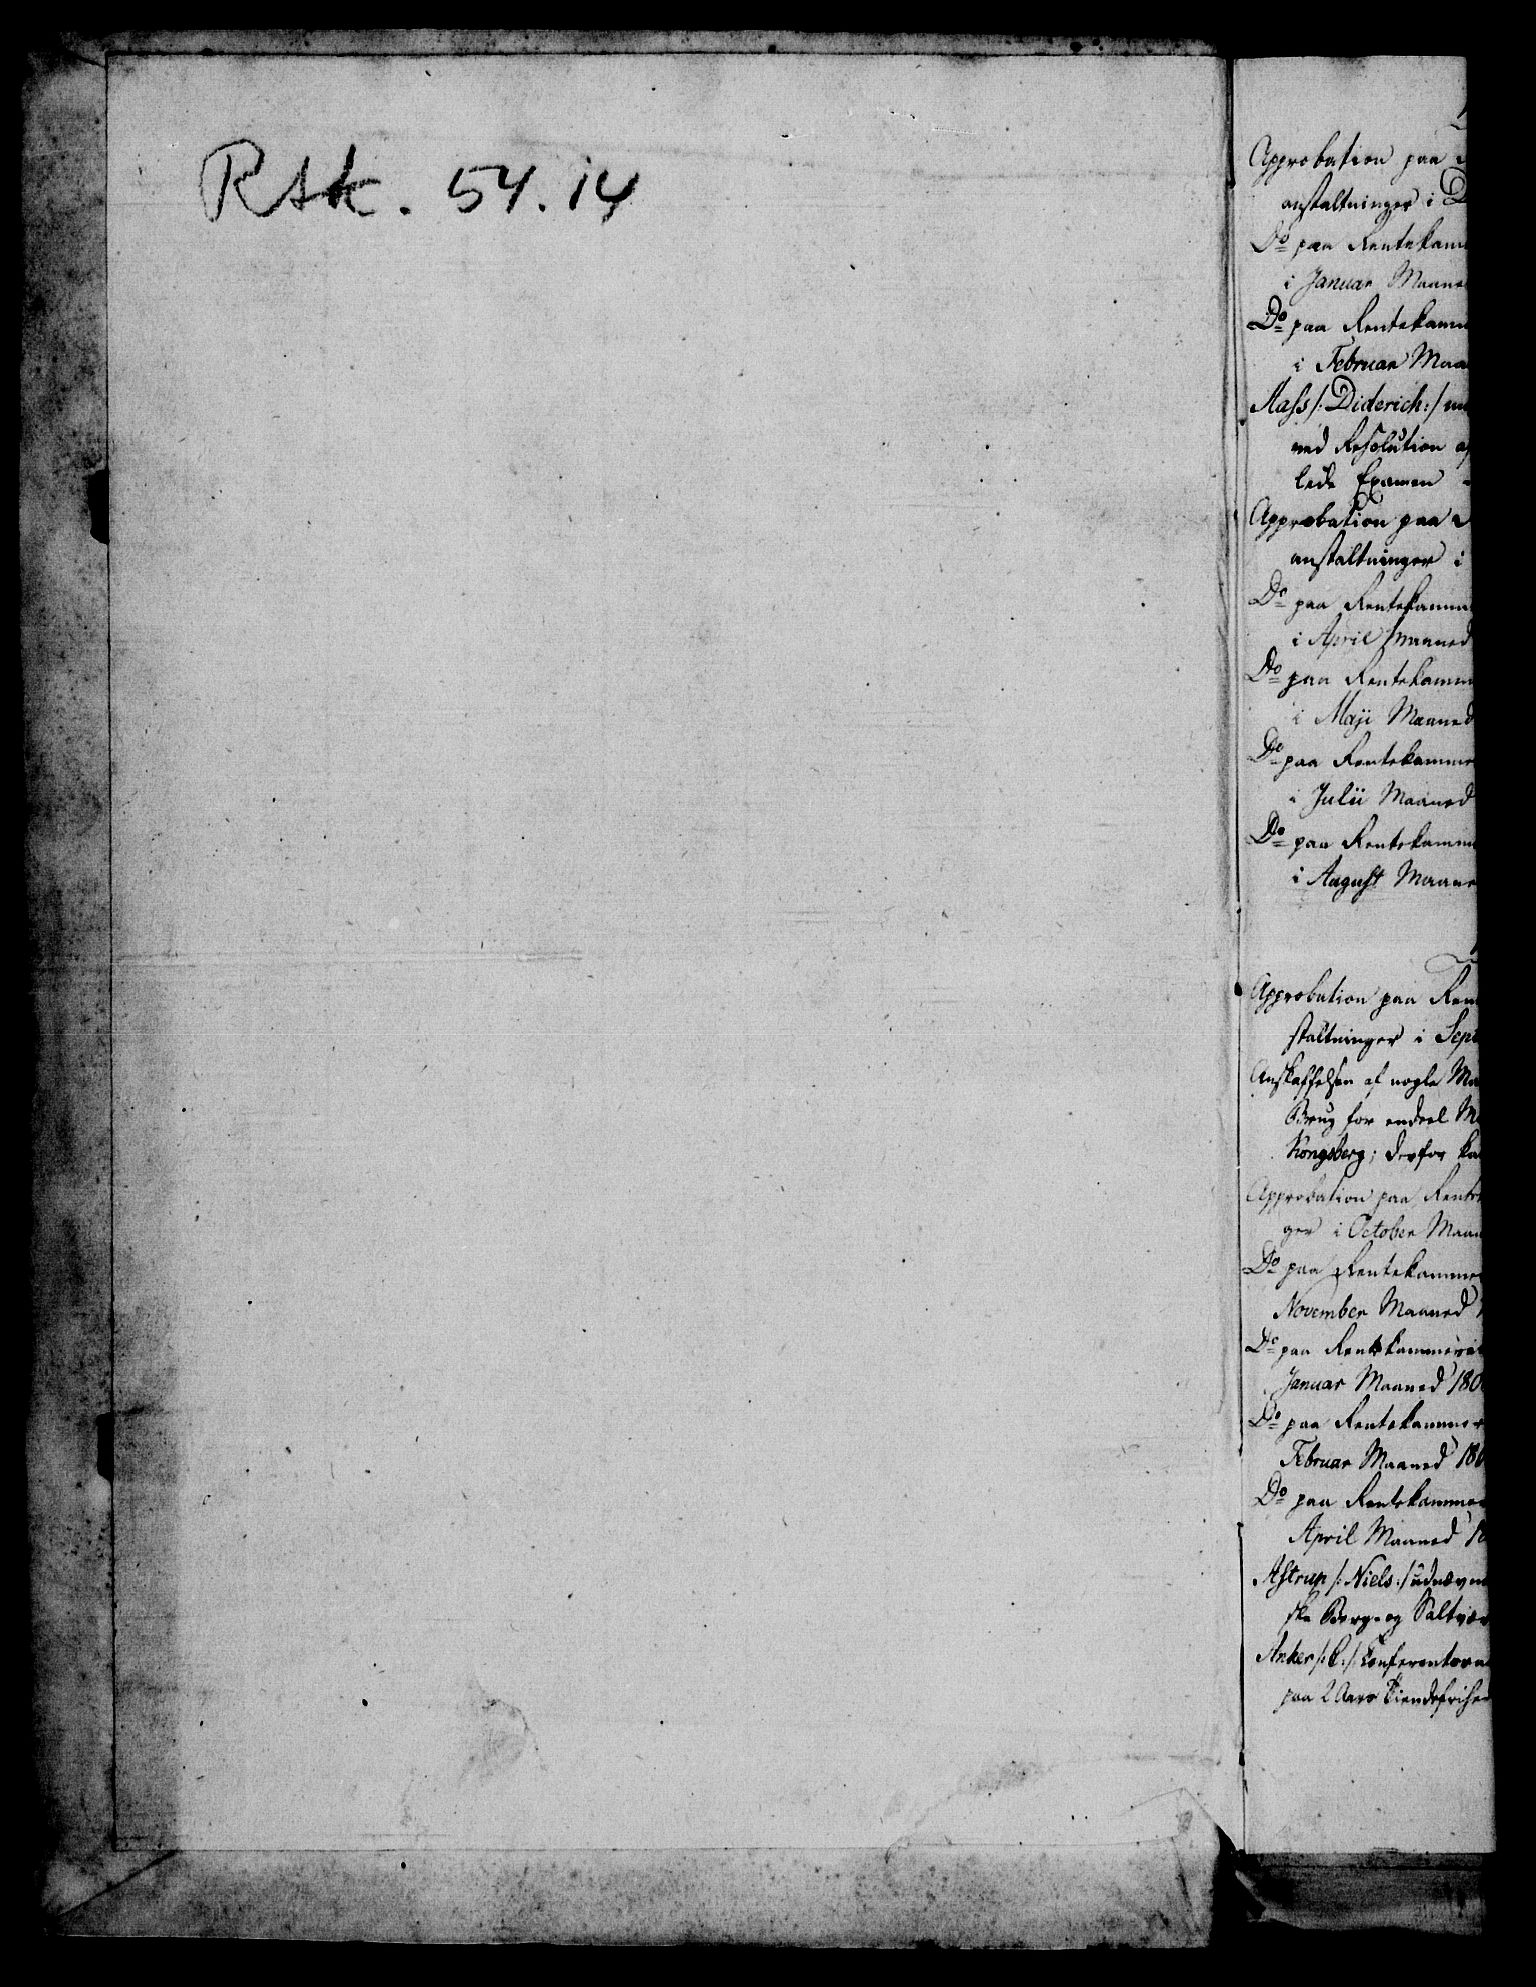 Rtk. 54.14
Approbation paa
anstaltninger i D
Do paa Rentekam
i Januar Maane
Do paa Rentekam
i Februar Maa
Aass /: Diderich :/
ved Resolution
lede Examen
Approbation paa
anstaltninger i
Do paa Rentekamm
i April Maaned
Do paa Rentekamm
i Maji Maaned
Do paa Rentekamme
i Julii Maaned
Do paa Rentekamm
i August Maane
Approbation paa Ren
staltninger i Sept
Anskaffelsen af nogle Ma
Brug for endeel M
Kongsberg; derfor ka
Approbation paa Rente
ger i October Maan
Do paa Rentekamme
November Maaned
Do paa Rentekammeret
Januar Maaned 180
Do paa Rentekammer
Februar Maaned 180
Do paa Rentekammer
April Maaned 1
Astrup /: Niels :/ udnævn
ske Berg- og Saltvær
Anker /: C :/ Conferentera
paa 2 Aars Tiendefrihe